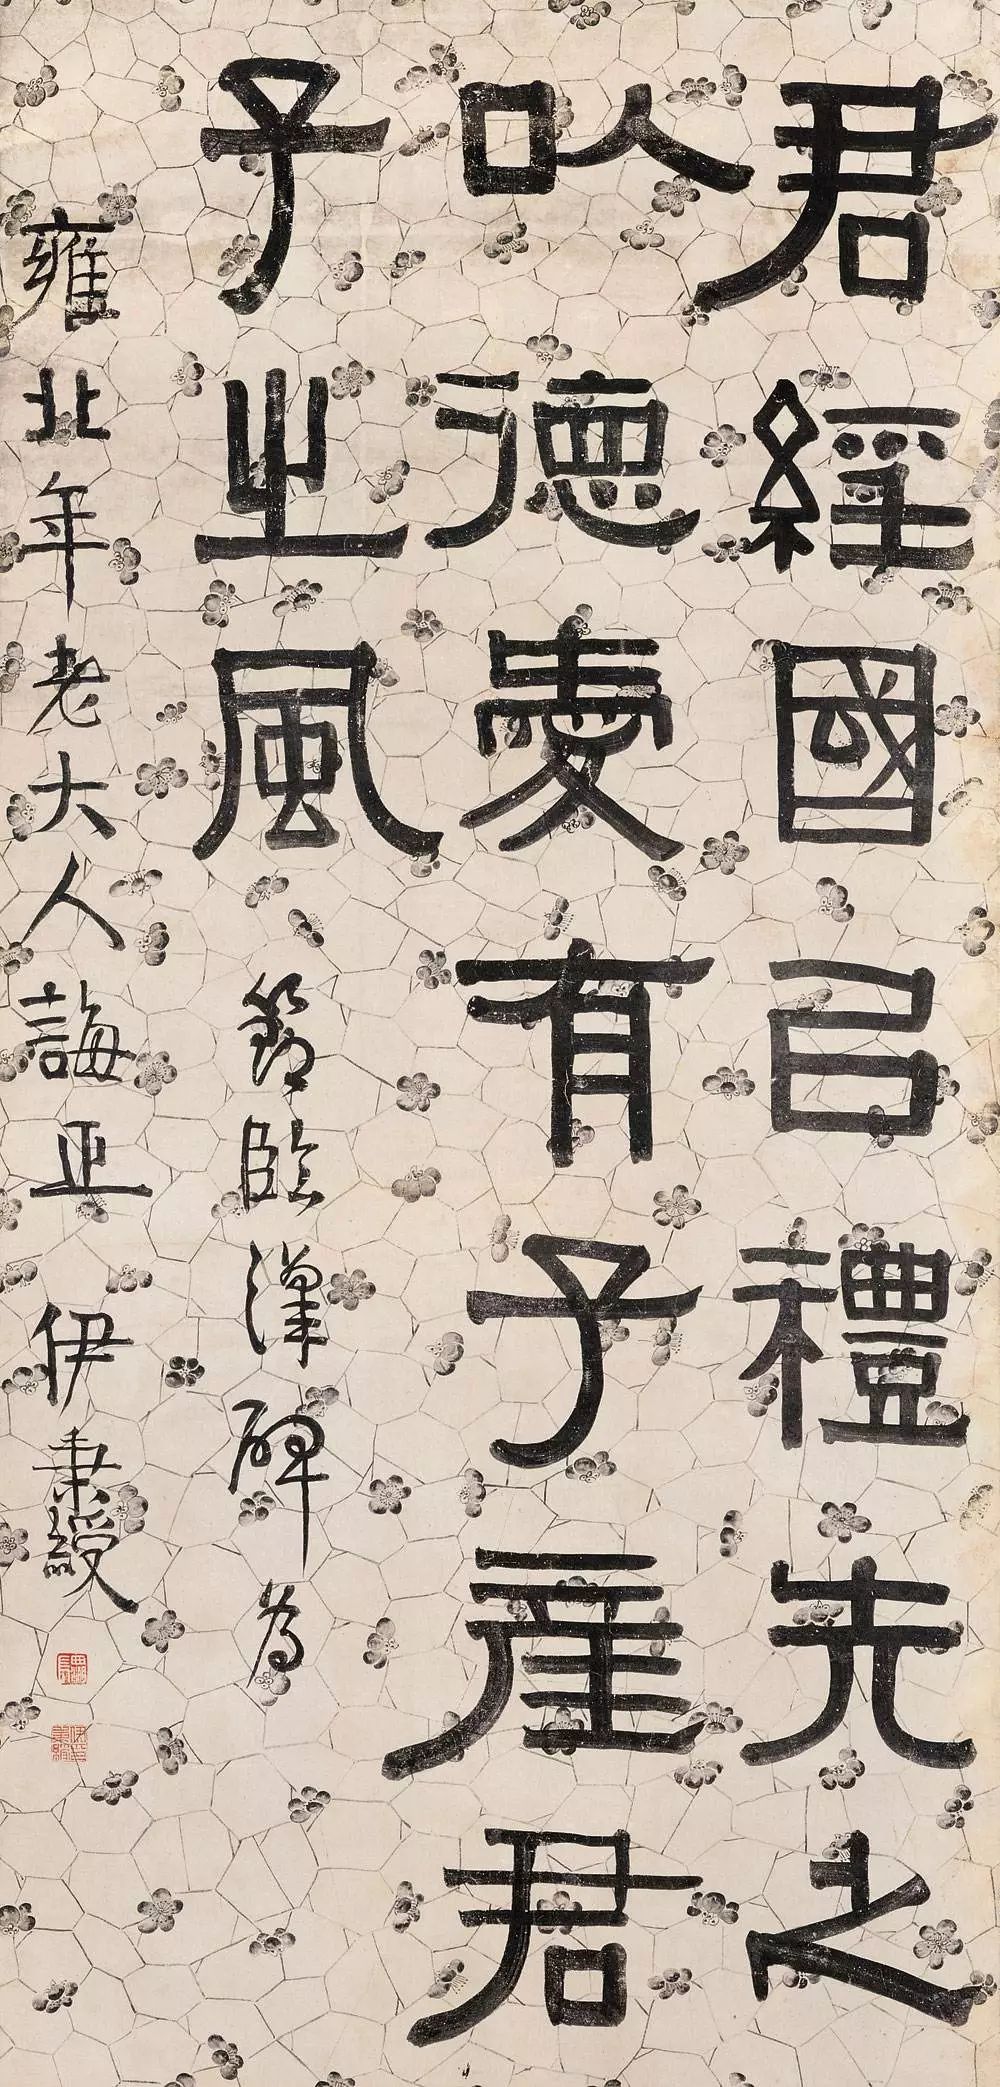 君經國㠯禮先之
㕥德有子產君
子之風 節臨漢碑為
雍北年老大人誨正 伊秉綬